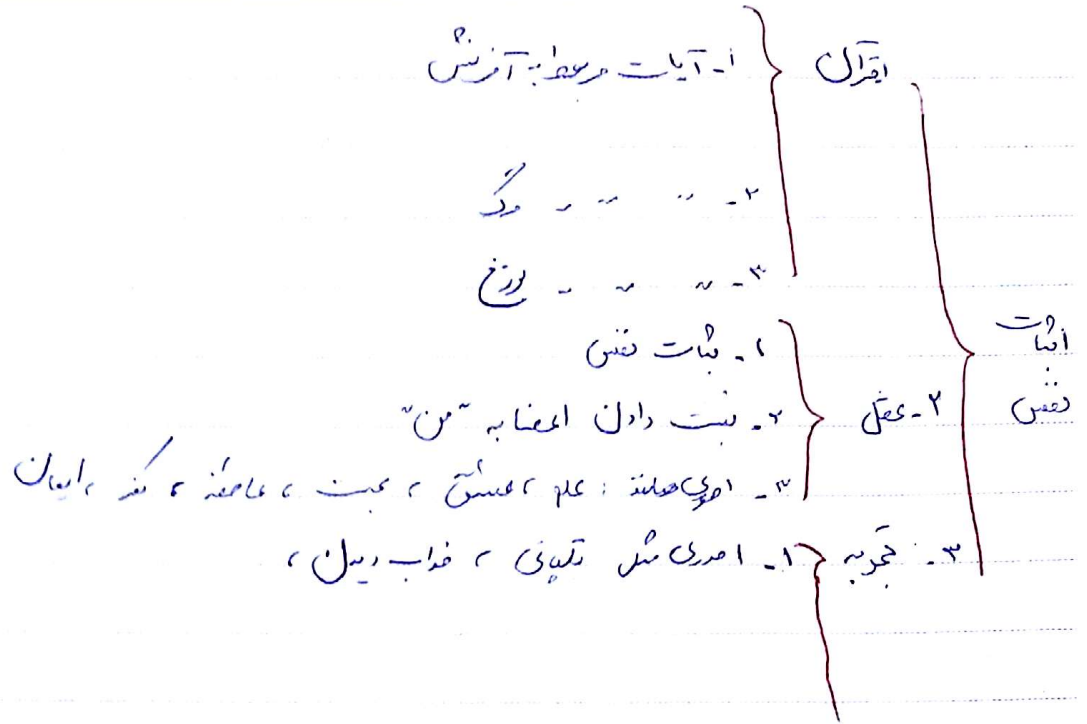 ۱- قرآن ۱- آیات مربوط به آفرینش
۲- " " " مرگ
۳- " " " برزخ
اثبات
نفس
۱- ثبات نفس
۲- عقل ۲- نسبت دادن اعضا به "من"
۳- اموری مانند: علم، عشق، محبت، عاطفه، کفر، ایمان
۳- تجربه ۱- اموری مثل تله‌پاتی، خواب دیدن،